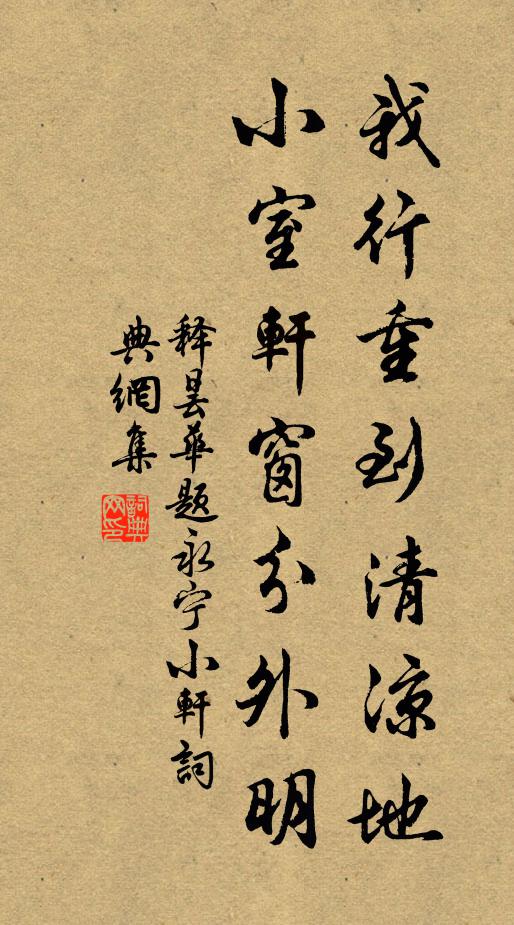 我行重到清凉地
小室軒窗分外明
释昙華题永宁小軒詞
典網集
詞典网印